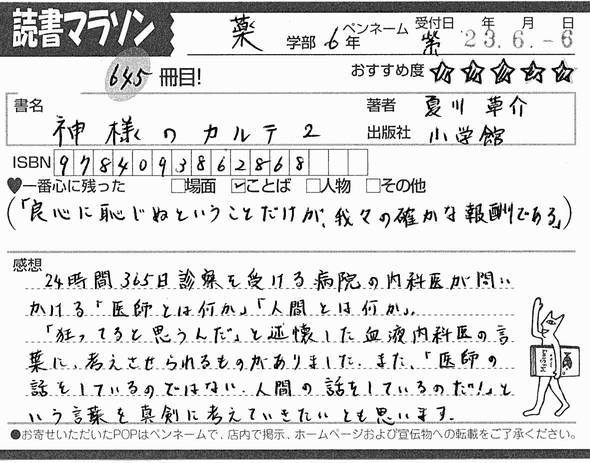 読書マラソン
薬 学部 6年 ペンネーム 紫 受付日 年 月 日
23.6.-6
645冊目! おすすめ度 ☆☆☆☆☆
書名 神様のカルテ2
著者 夏川 草介
出版社 小学館
ISBN 9784093862868
♥一番心に残った □場面 ☑ことば □人物 □その他
(「良心に恥じぬということだけが、我々の確かな報酬である」)
感想
24時間365日診察を受ける病院の内科医が問い
かける「医師とは何か」「人間とは何か」.
「狂ってると思うんだ」と述懐した血液内科医の言
葉に、考えさせられるものがありました.また、「医師の
話をしているのではない.人間の話をしているのだ!」と
いう言葉を真剣に考えていきたいとも思います.
●お寄せいただいたPOPはペンネームで、店内で掲示、ホームページおよび宣伝物への転載をご了承ください。